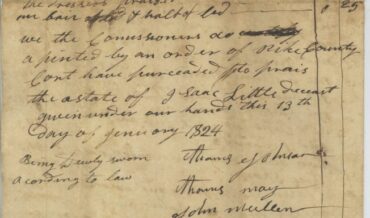 the Dressers
our hair & halter & led 25
we the Comissoners
apented by an order of Pike County
Cort have purceaded to prais
the astate of Isaac Little deceast
given under our hands this 13th
day of Jenuory 1824
Being Dewly sworn
acording to law
Thomas Johnson
Thomas may
John McCllen